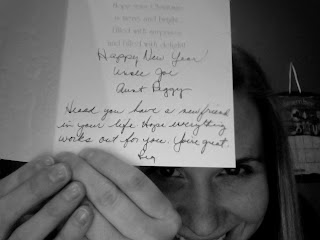 Hope your Tomorrow
is warm and bright...
filled with happiness
and filled with delight
Happy New Year!
Uncle Joe
Aunt Peggy
Heard you have a new friend
in your life. Hope everything
works out for you. You're great.